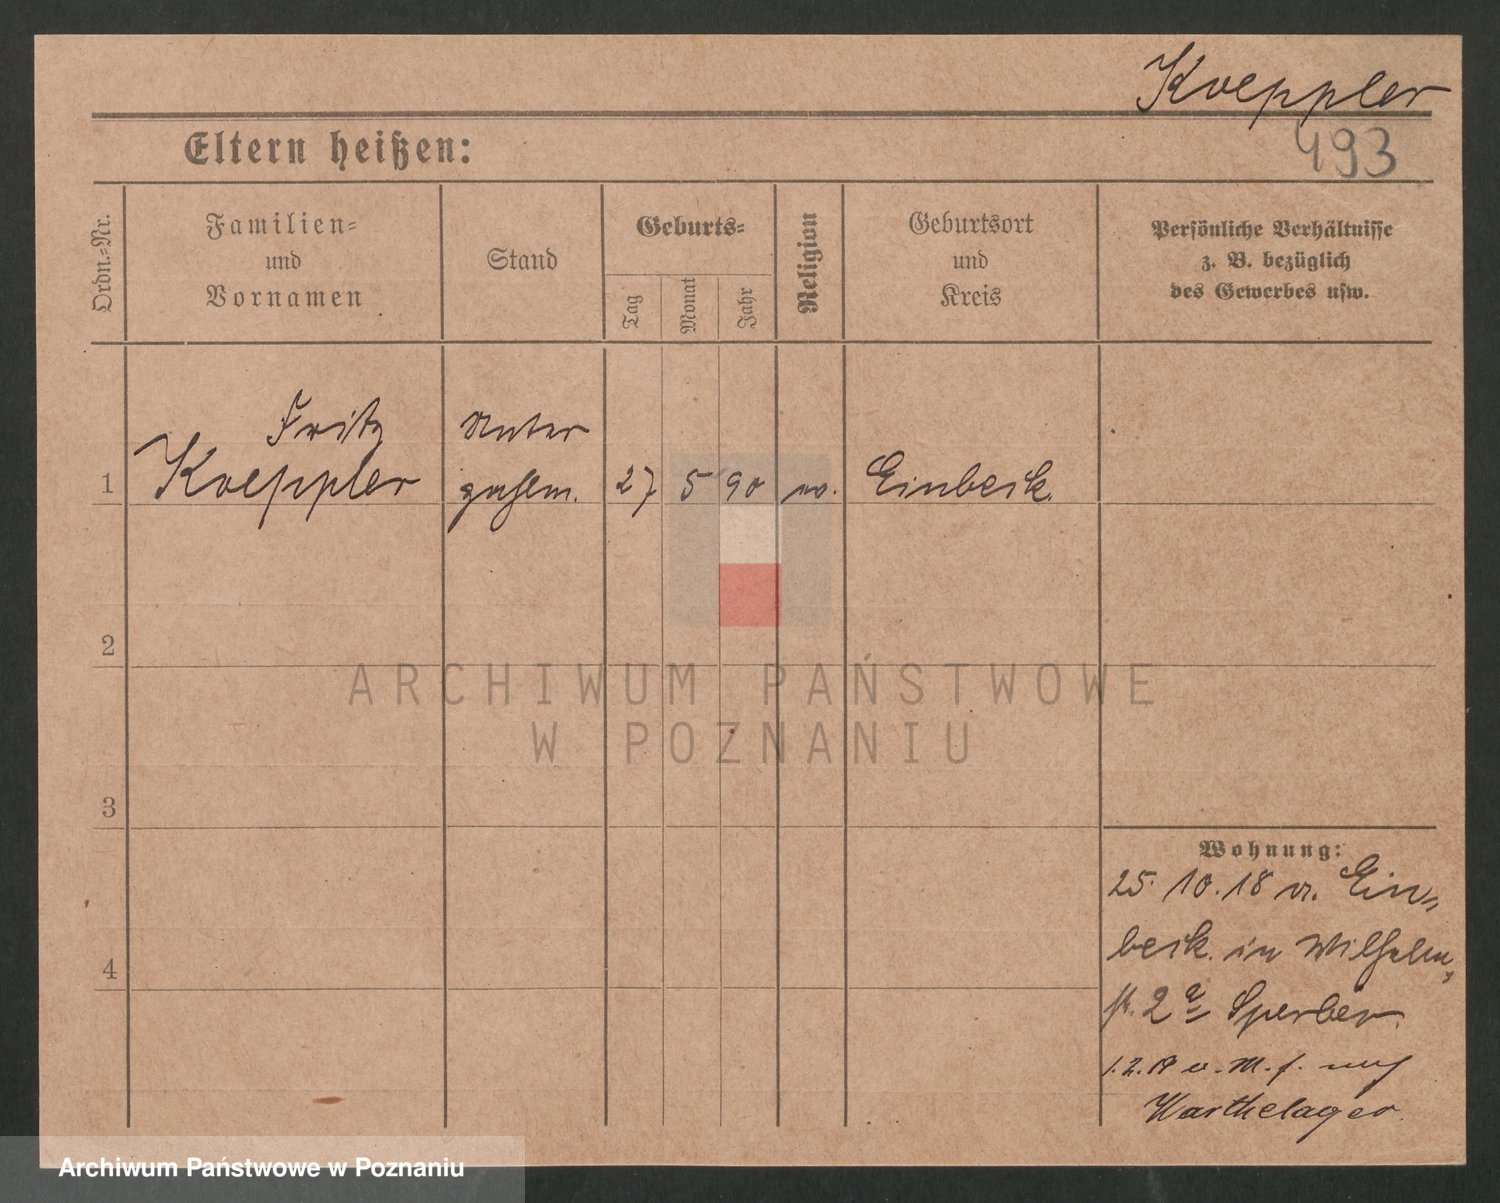 Koeppler
493
Eltern heißen:
Ordn.-Nr.
Familien-
und
Vornamen
Stand
Geburts-
Tag
Monat
Jahr
Religion
Geburtsort
und
Kreis
Persönliche Verhältnisse
z. B. bezüglich
des Gewerbes usw.
1
Fritz
Koeppler
Unter
zahlm.
27
5
90
ev.
Einbeck
2
3
4
ARCHIWUM PAŃSTWOWE
W POZNANIU
Wohnung:
25. 10. 18 v. Ein-
beck. in Wilhelm-
str. 2 a Sperber.
1.2.19 v. M. f. nach
Warthelager
Archiwum Państwowe w Poznaniu